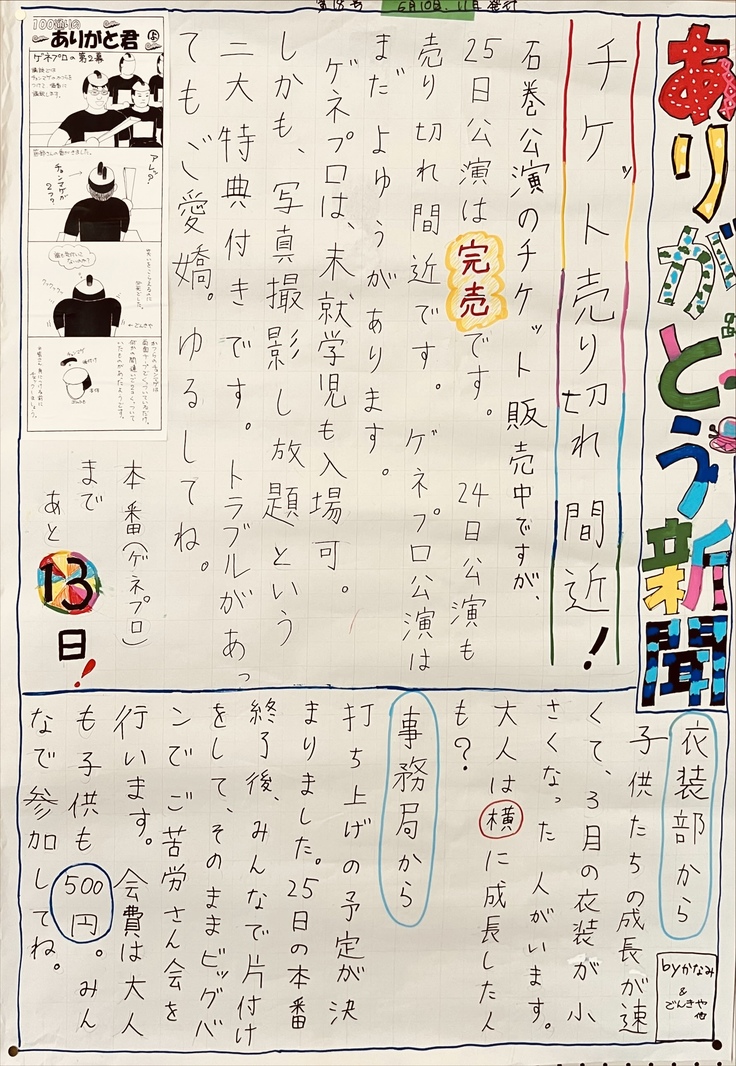 第18号
5月10日、11日 発行
ありがとう新聞
チケット売り切れ間近！
石巻公演のチケット販売中ですが、
25日公演は完売です。24日公演も
売り切れ間近です。ゲネプロ公演は
まだよゆうがあります。
ゲネプロは、未就学児も入場可。
しかも、写真撮影し放題という
二大特典付きです。トラブルがあっ
てもご愛嬌。ゆるしてね。
本番(ゲネプロ)
まで
あと
13
日！
100通りの
ありがと君
ゲネプロの第2幕
アレッ？
チョンマゲが
2つ？
衣装部から
子供たちの成長が速
くて、3月の衣装が小
さくなった人がいます。
大人は横に成長した人
も？
事務局から
打ち上げの予定が決
まりました。25日の本番
終了後、みんなで片付け
をして、そのままビッグバ
ンでご苦労さん会を
行います。会費は大人
も子供も500円。みん
なで参加してね。
byかなみ
&
どんきや
他